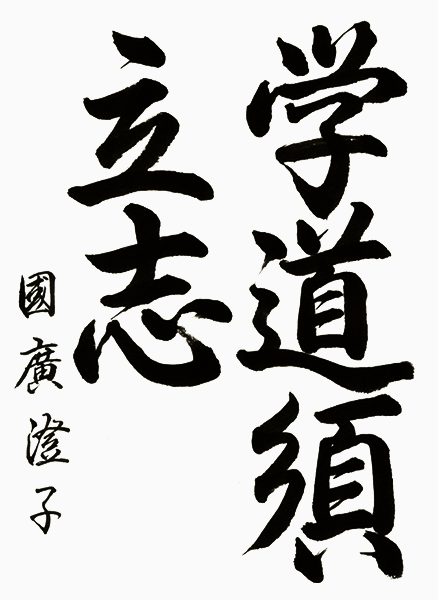 学道須
立志
國廣澄子